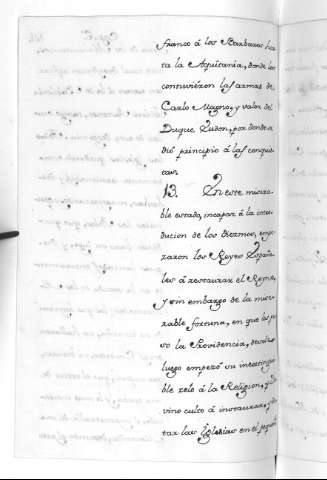 franco á los Barbaros has
ta la Aquitania, donde los
contuviéron las armas de
Carlo Magno, y valor del
Duque Eudon, por donde se
dió principio á las conquis
tas.
13. En este misera
ble estado, incapaz á la intro
ducion de los Diezmos, empe
zaron los Reyes Españo
les á restaurar el Reyno,
y sin embargo de la mise
rable fortuna, en que los pu
so la Providencia, desde
luego empezó su inextingui
ble zelo á la Religion, y Di
vino culto á instaurar, y do
tar las Iglesias en el pequeño